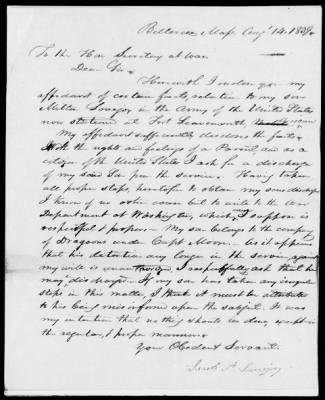 Mass Augt 14. 1839.
To the Hon Secretary of War,
Dear Sir,
Herewith I enclose you my
affidavit of certain facts, relative to my son
Lovejoy in the Army of the United States
now stationed at Fort Leavenworth,
My affidavit sufficiently discloses the facts.
With the rights and feelings of a Parent, and as a
citizen of the United States I ask for a discharge
of my son from the service. Having taken
all proper steps, heretofore to obtain my sons discharge
I know of no other course but to write to the War
Department at Washington, which, I suppose is
respectful & proper. My son belongs to the company
of Dragoons under Capt Moore. As it appears
that his detention any longer in the service, against
my will is unauthorized, I respectfully ask that he
may discharged. If my son has taken any irregular
steps in this matter, I think it must be attributed
to his being misinformed upon the subject. It was
my intention that nothing should be done except in
the regular, & proper manner.
Your Obedient Servant.
Sarah A. Lovejoy